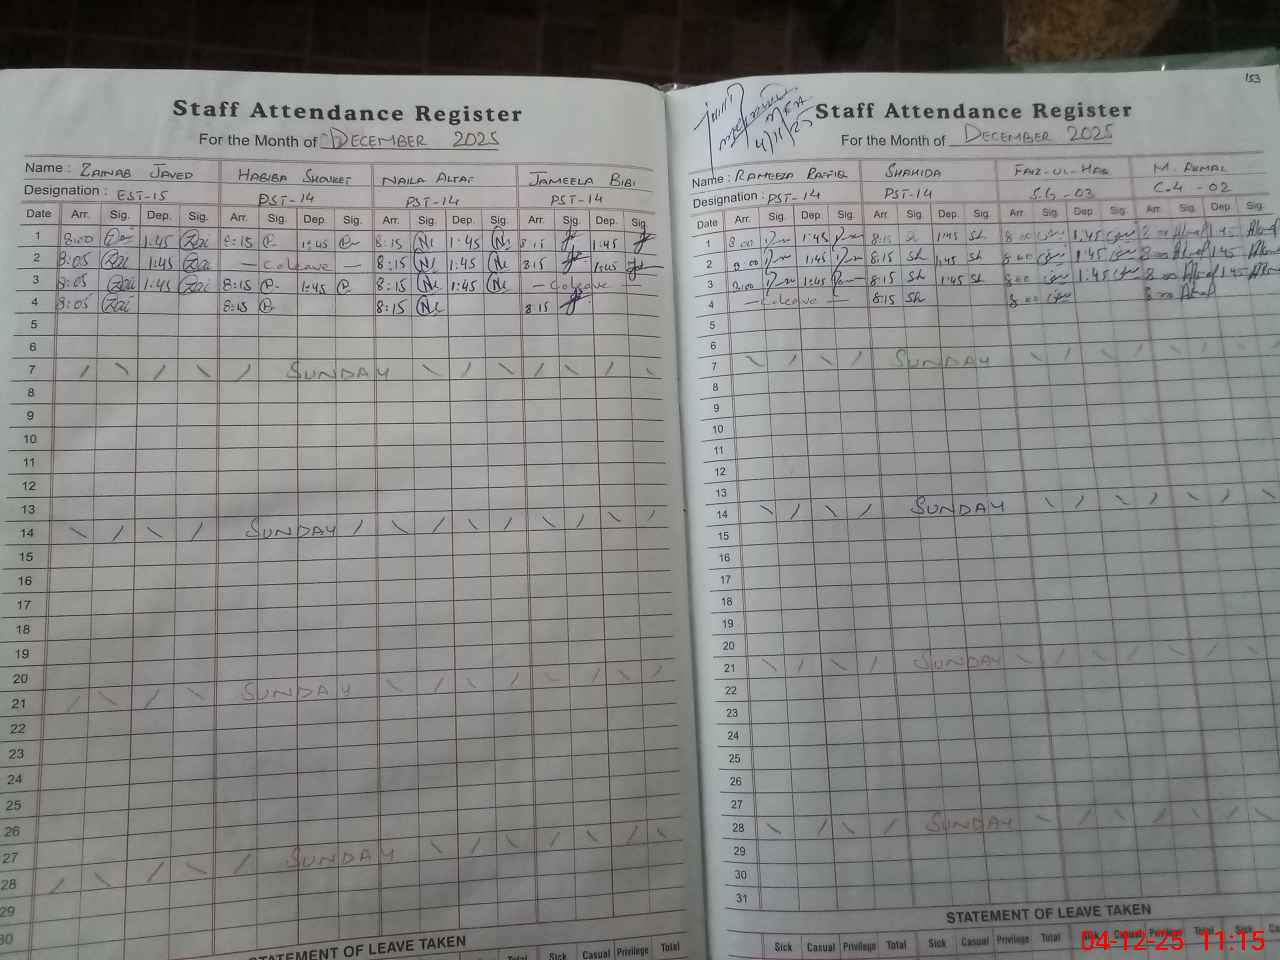 153
Staff Attendance Register
For the Month of DECEMBER 2025
Name : ZAINAB JAVED HABIBA SHOUKET NAILA ALTAF JAMEELA BIBI
Designation : EST-15 PST-14 PST-14 PST-14
Date Arr. Sig. Dep. Sig. Arr. Sig. Dep. Sig. Arr. Sig. Dep. Sig. Arr. Sig. Dep. Sig.
1 8:00 Zai 1:45 Zai 8:15 1:45 8:15 Ni 1:45 Ni 8:15 1:45
2 8:05 Zai 1:45 Zai — C.leave — 8:15 Ni 1:45 Ni 8:15 1:45
3 8:05 Zai 1:45 Zai 8:15 1:45 8:15 Ni 1:45 Ni — C.leave —
4 8:05 Zai 8:15 8:15 Ni 8:15
5
6
7 SUNDAY
8
9
10
11
12
13
14 SUNDAY
15
16
17
18
19
20
21 SUNDAY
22
23
24
25
26
27
28 SUNDAY
29
30
STATEMENT OF LEAVE TAKEN
Sick Casual Privilege Total
Staff Attendance Register
4/11/25
For the Month of DECEMBER 2025
Name : RAMEEZA RAFFIQ SHAHIDA FAIZ-UL-HAQ M. AKMAL
Designation : PST-14 PST-14 S.G-03 C-4-02
Date Arr. Sig. Dep. Sig. Arr. Sig. Dep. Sig. Arr. Sig. Dep Sig. Arr. Sig. Dep. Sig.
1 8:00 1:45 8:15 Sh 1:45 Sh 8:00 1:45 8:00 Akmal 1:45
2 8:00 1:45 8:15 Sh 1:45 Sh 8:00 1:45 8:00 Akmal 1:45
3 8:00 1:45 8:15 Sh 1:45 Sh 8:00 1:45 8:00 Akmal 1:45
4 — C.leave — 8:15 Sh 8:00 8:00 Akmal
5
6
7 SUNDAY
8
9
10
11
12
13
14 SUNDAY
15
16
17
18
19
20
21 SUNDAY
22
23
24
25
26
27
28 SUNDAY
29
30
31
STATEMENT OF LEAVE TAKEN
Sick Casual Privilege Total Sick Casual Privilege Total Sick Casual Privilege Total Sick
04-12-25 11:15